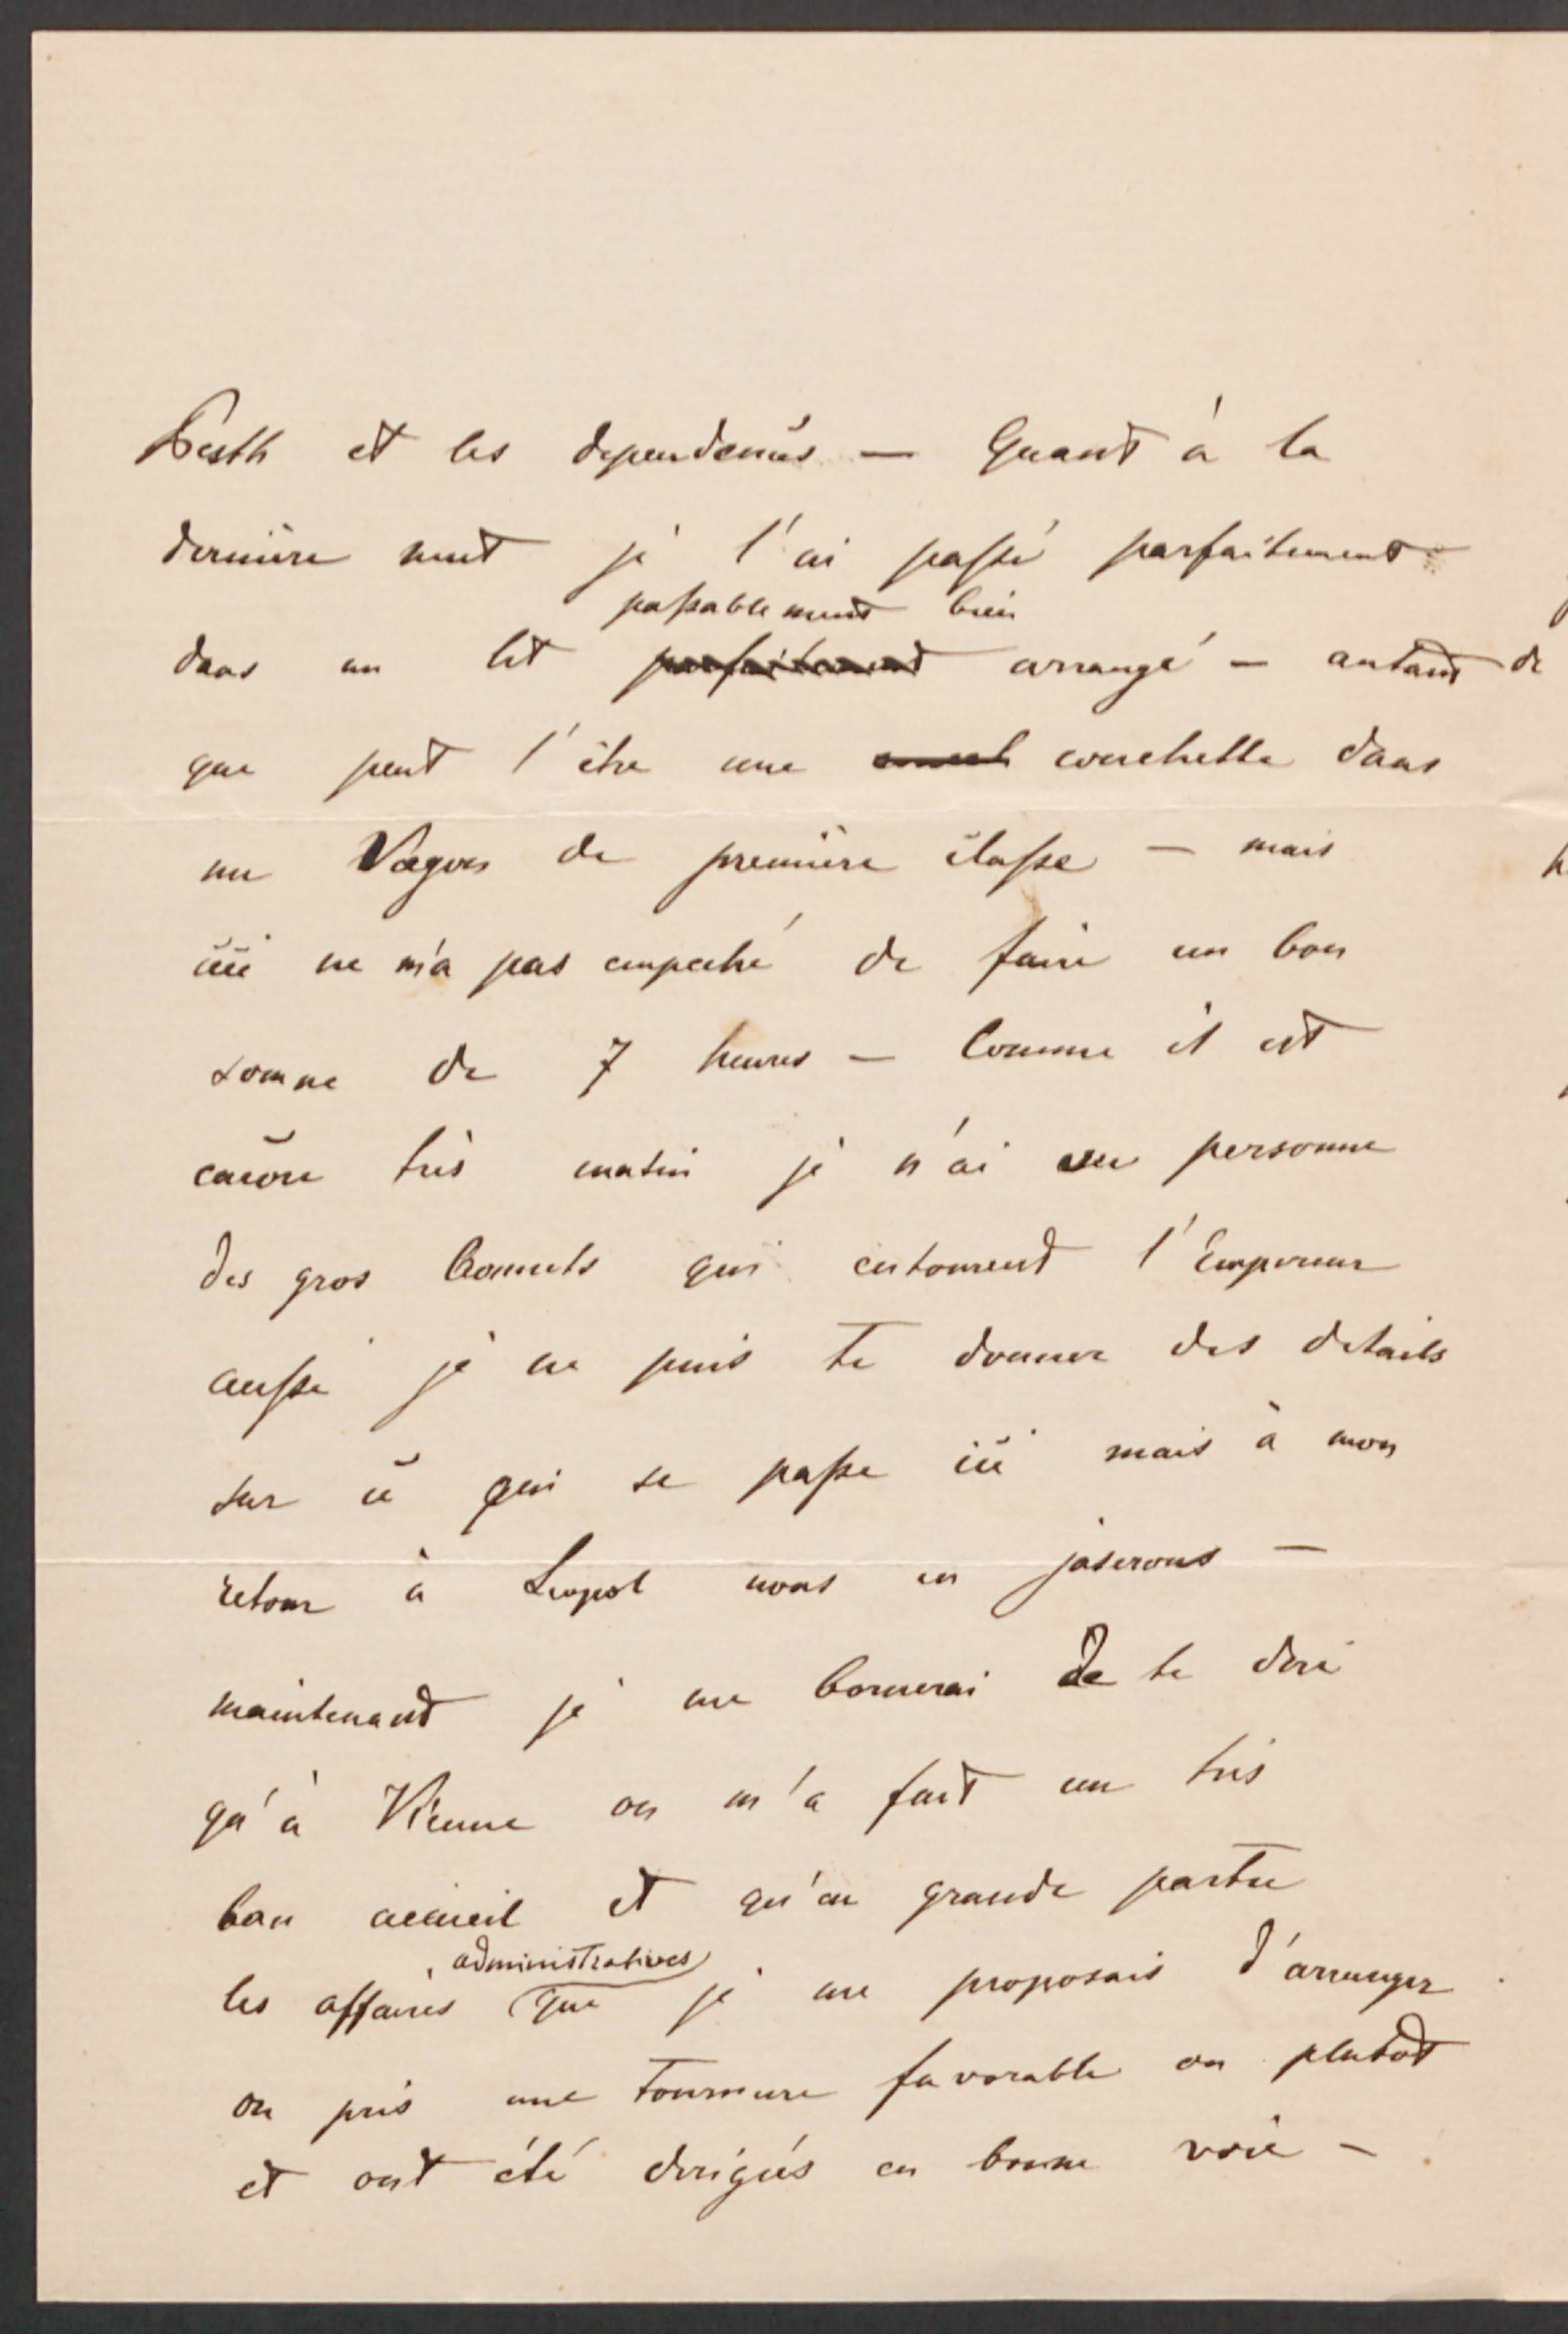 Pesth et les dependences — Quant à la
dernière nuit je l'ai passé parfaitement
passablement bien
dans un lit parfaitement arrangé — autant de
que peut l'être une couchette dans
un Vagon de première classe — mais
ceci ne m'a pas empeché de faire un bon
somne de 7 heures — Comme il est
encore très matin je n'ai vu personne
des gros bonnets qui entourent l'Empereur
aussi je ne puis te donner des details
sur ce qui se passe ici mais à mon
retour à Leopol nous en jaserons —
maintenant je me bornerai de te dire
qu'à Vienne on m'a fait un très
bon accueil et qu'en grande partie
administratives
les affaires que je me proposais d'arranger
on pris une tournure favorable ou plutot
et ont été dirigées en bonne voie —